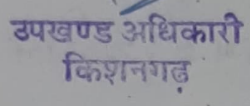 उपखण्ड अधिकारी
किशनगढ़